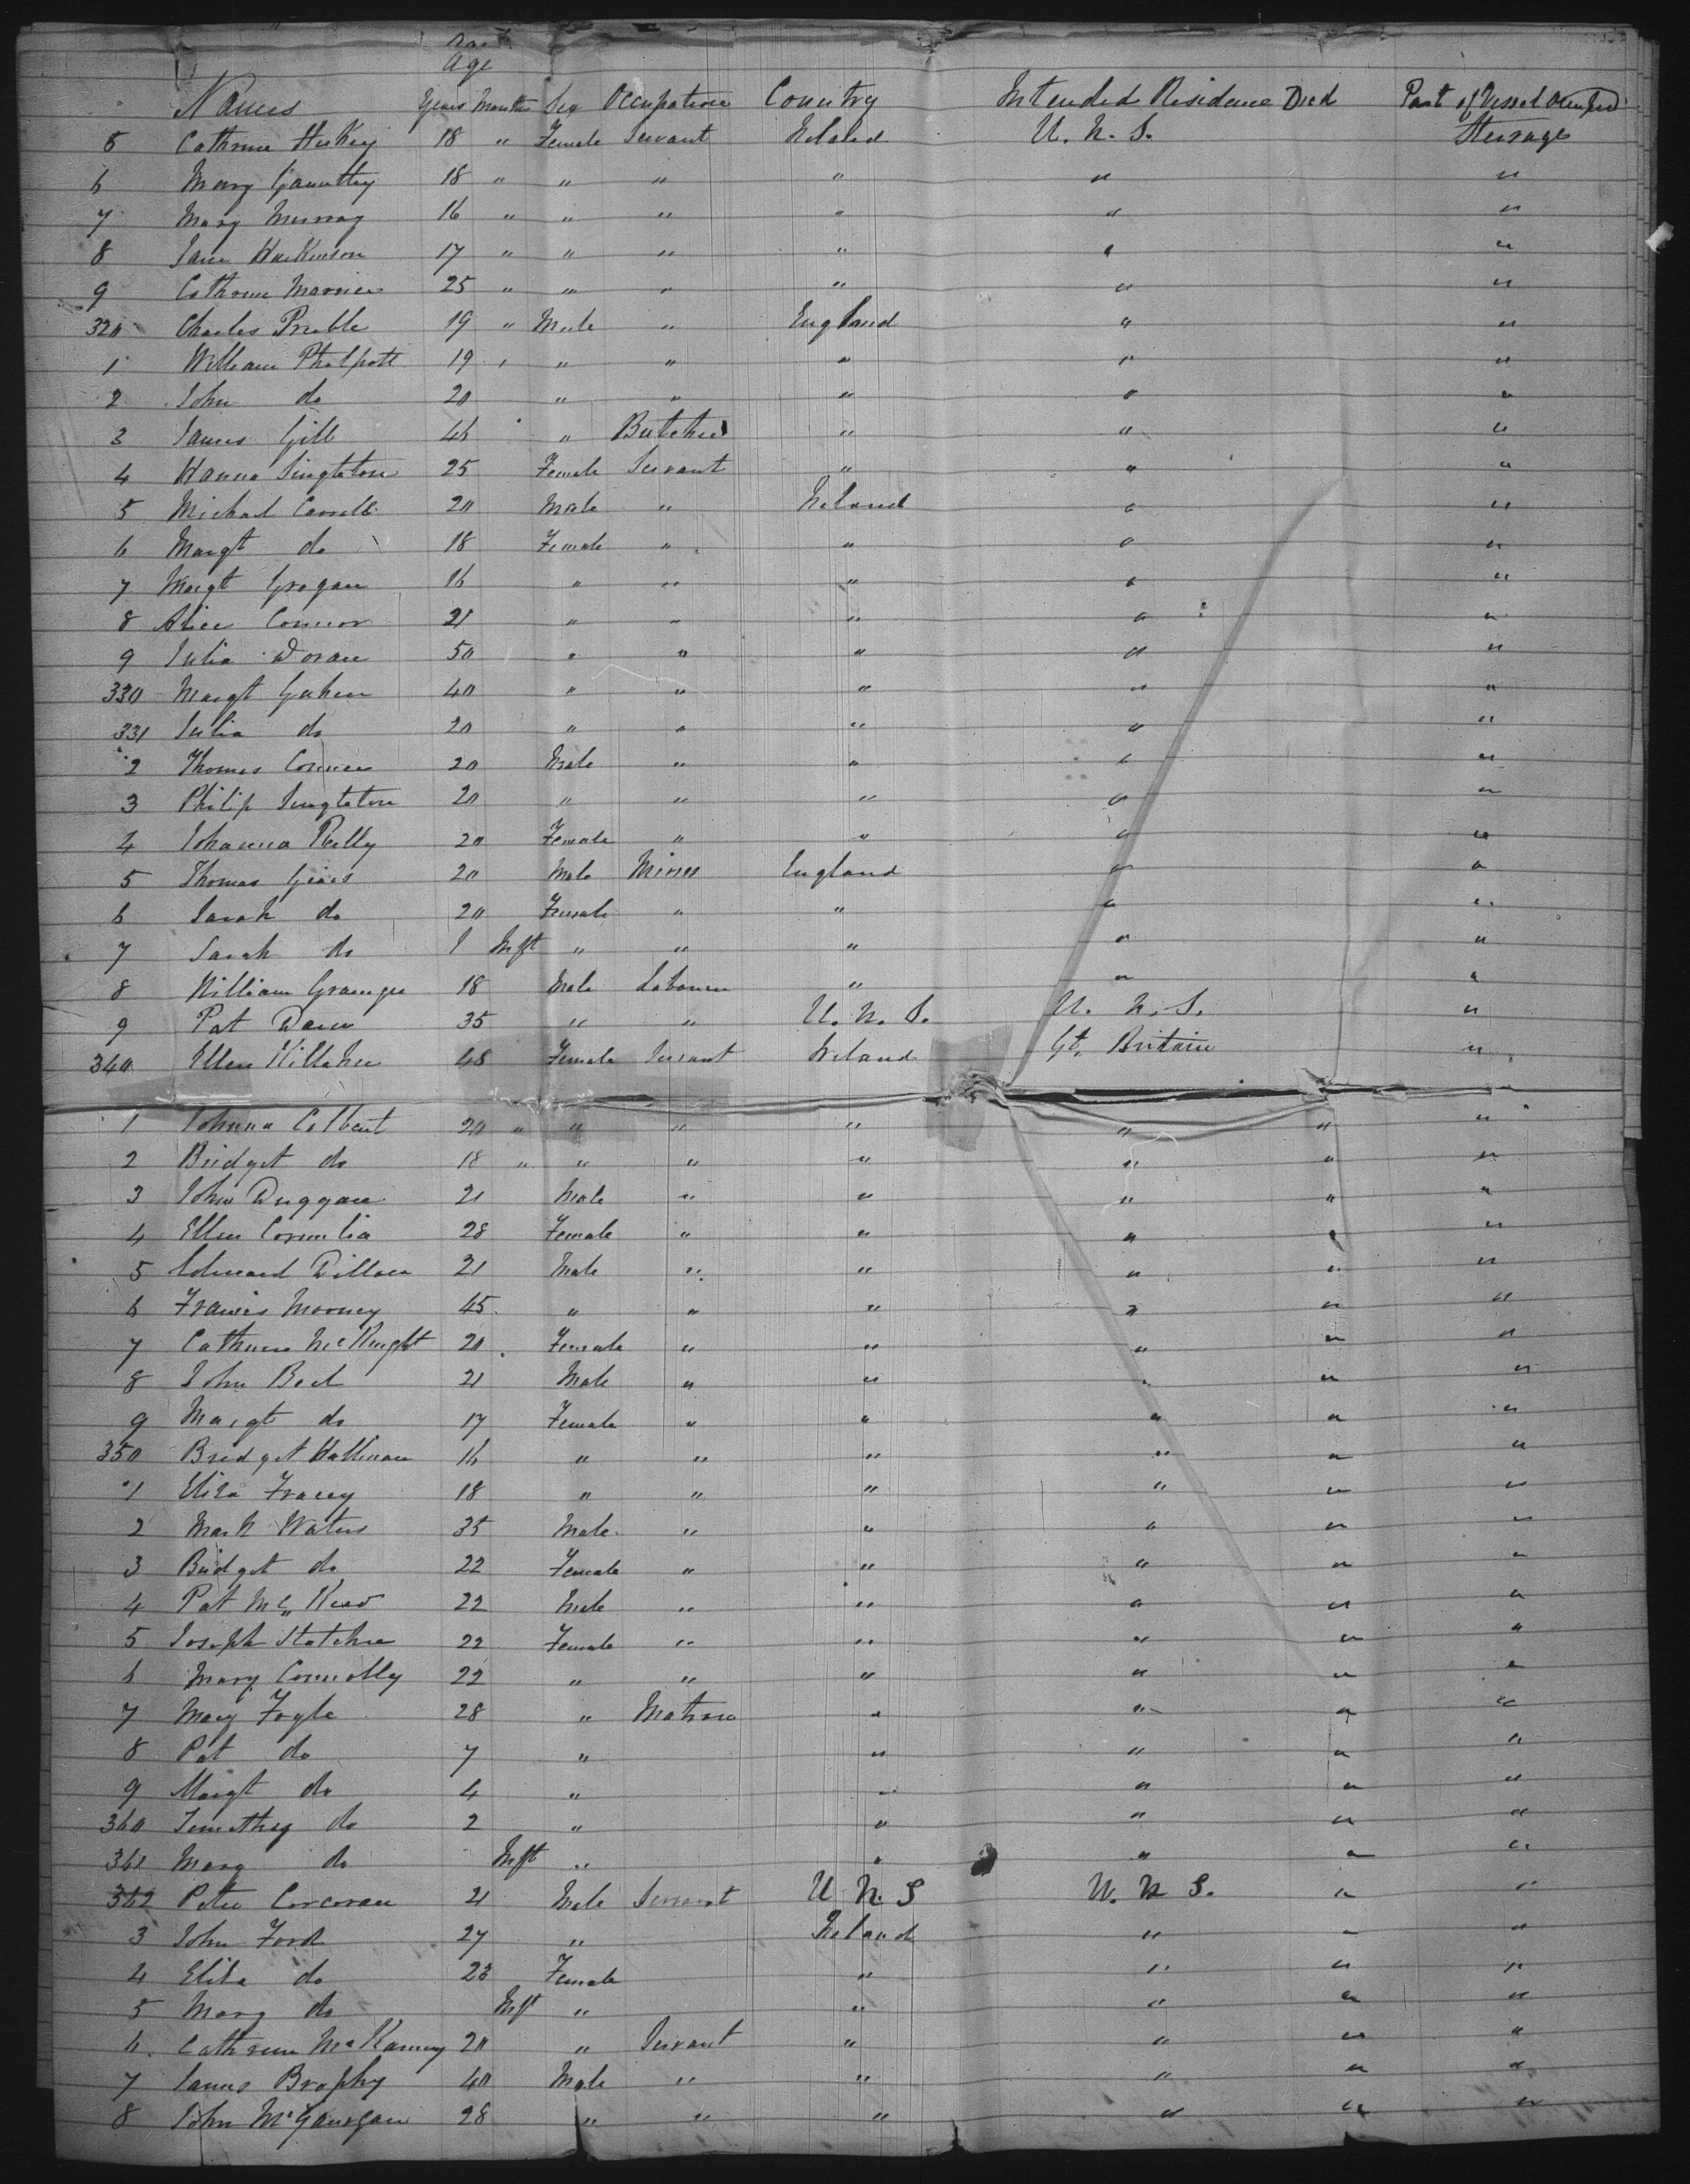 Age
Names Years Months Sex Occupation Country Intended Residence Died Part of Vessel Occupied
5 Cathrine Hickey 18 " Female Servant Ireland U. N. S. Steerage
6 Mary 18 " " " " " "
7 Mary Murray 16 " " " " " "
8 Jane 17 " " " " " "
9 Cathrine 25 " " " " " "
320 Charles Preble 19 " Male " England " "
1 William Philpott 19 " " " " " "
2 John do 20 " " " " "
3 James Gill 46 " Butcher " " "
4 Hanna Singleton 25 Female Servant " " "
5 Michael Carroll 20 Male " Ireland " "
6 Margt do 18 Female " " " "
7 Margt Grogan 16 " " " " "
8 Alice Connor 21 " " " " "
9 Julia Doran 50 " " " " "
330 Margt 40 " " " " "
331 Julia do 20 " " " " "
2 Thomas Connor 20 Male " " " "
3 Philip Singleton 20 " " " " "
4 Johanna Reilly 20 Female " " " "
5 Thomas 20 Male Miner England " "
6 Sarah do 20 Female " " " "
7 Sarah do 1 Inft " " " " "
8 William Grainger 18 Male Labourer " " "
9 Pat 35 " " U. N. S. U. N. S. "
340 Ellen Killaher 48 Female Servant Ireland Gt. Britain "
1 Johnna Colbert 20 " " " " " " "
2 Bridget do 18 " " " " " " "
3 John Duggan 21 Male " " " " "
4 Ellen 28 Female " " " " "
5 Edward Dillon 21 Male " " " " "
6 Francis Mooney 45 " " " " " "
7 Cathrine McKnight 20 Female " " " " "
8 John 21 Male " " " " "
9 Margt do 17 Female " " " " "
350 Bridget Hallinan 16 " " " " " "
1 Eliza Tracey 18 " " " " " "
2 Mark Waters 35 Male " " " " "
3 Bridget do 22 Female " " " " "
4 Pat Mc 22 Male " " " " "
5 Joseph 22 Female " " " " "
6 Mary Connolly 22 " " " " " "
7 Mary Fogle 28 " Matron " " " "
8 Pat do 7 " " " " "
9 Margt do 4 " " " " "
360 Timothy do 2 " " " " "
361 Mary do Inft " " " " "
362 Peter Corcoran 21 Male Servant U N. S U. N S. " "
3 John Ford 27 " Ireland " " "
4 Eliza do 23 Female " " " "
5 Mary do Inft " " " " "
6 Cathrine 20 " Servant " " " "
7 James Brophy 40 Male " " " " "
8 John 28 " " " " " "